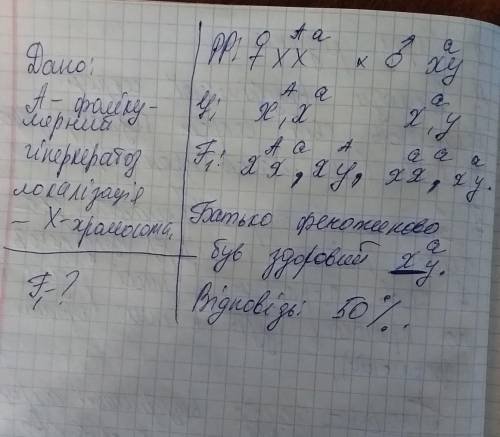 Дано:
А - фолiку-
лярний
гiперкератоз
локалiзацiя
- X-хромосома.
F₁?
PP: ♀ XᴬXᵃ × ♂ Xᵃy
G: Xᴬ, Xᵃ Xᵃ, y
F₁: XᴬXᵃ, Xᴬy, XᵃXᵃ, Xᵃy.
Батько фенотипово
був здоровий Xᵃy.
Вiдповiдь: 50%.